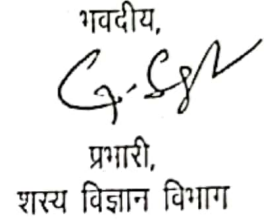 भवदीय,
प्रभारी,
शस्य विज्ञान विभाग